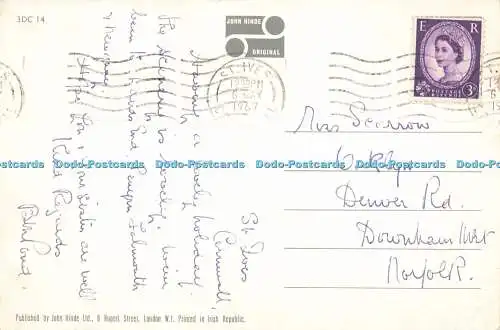 3DC 14
JOHN HINDE
ORIGINAL
ST. IVES
1967
E R
POSTAGE
3D
St Ives
Cornwall.
Having a lovely holiday.
the scenery is
been to Lands End, Penryn Falmouth
& Newquay
Hope You & your Sister are well
Kind Regards
Miss Scarrow
Denver Rd.
Downham Mkt
Norfolk.
Dodo-Postcards Dodo-Postcards Dodo-Postcards Dodo-Postcards Dodo-Postcards Dodo-Postcards
Published by John Hinde Ltd., 8 Rupert Street, London W.1. Printed in Irish Republic.